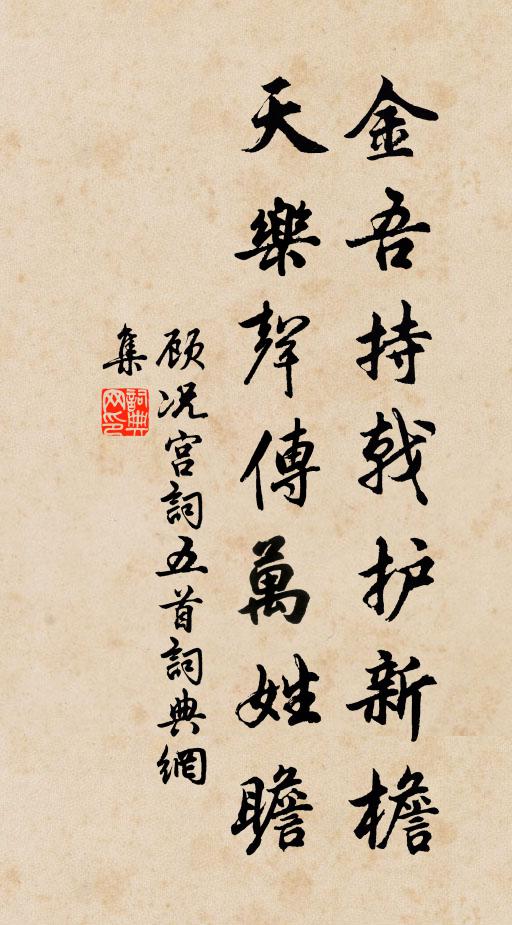 金吾持戟护新檐
天樂聲傳萬姓瞻
顾况宫詞五首詞典網
集
詞典
网印